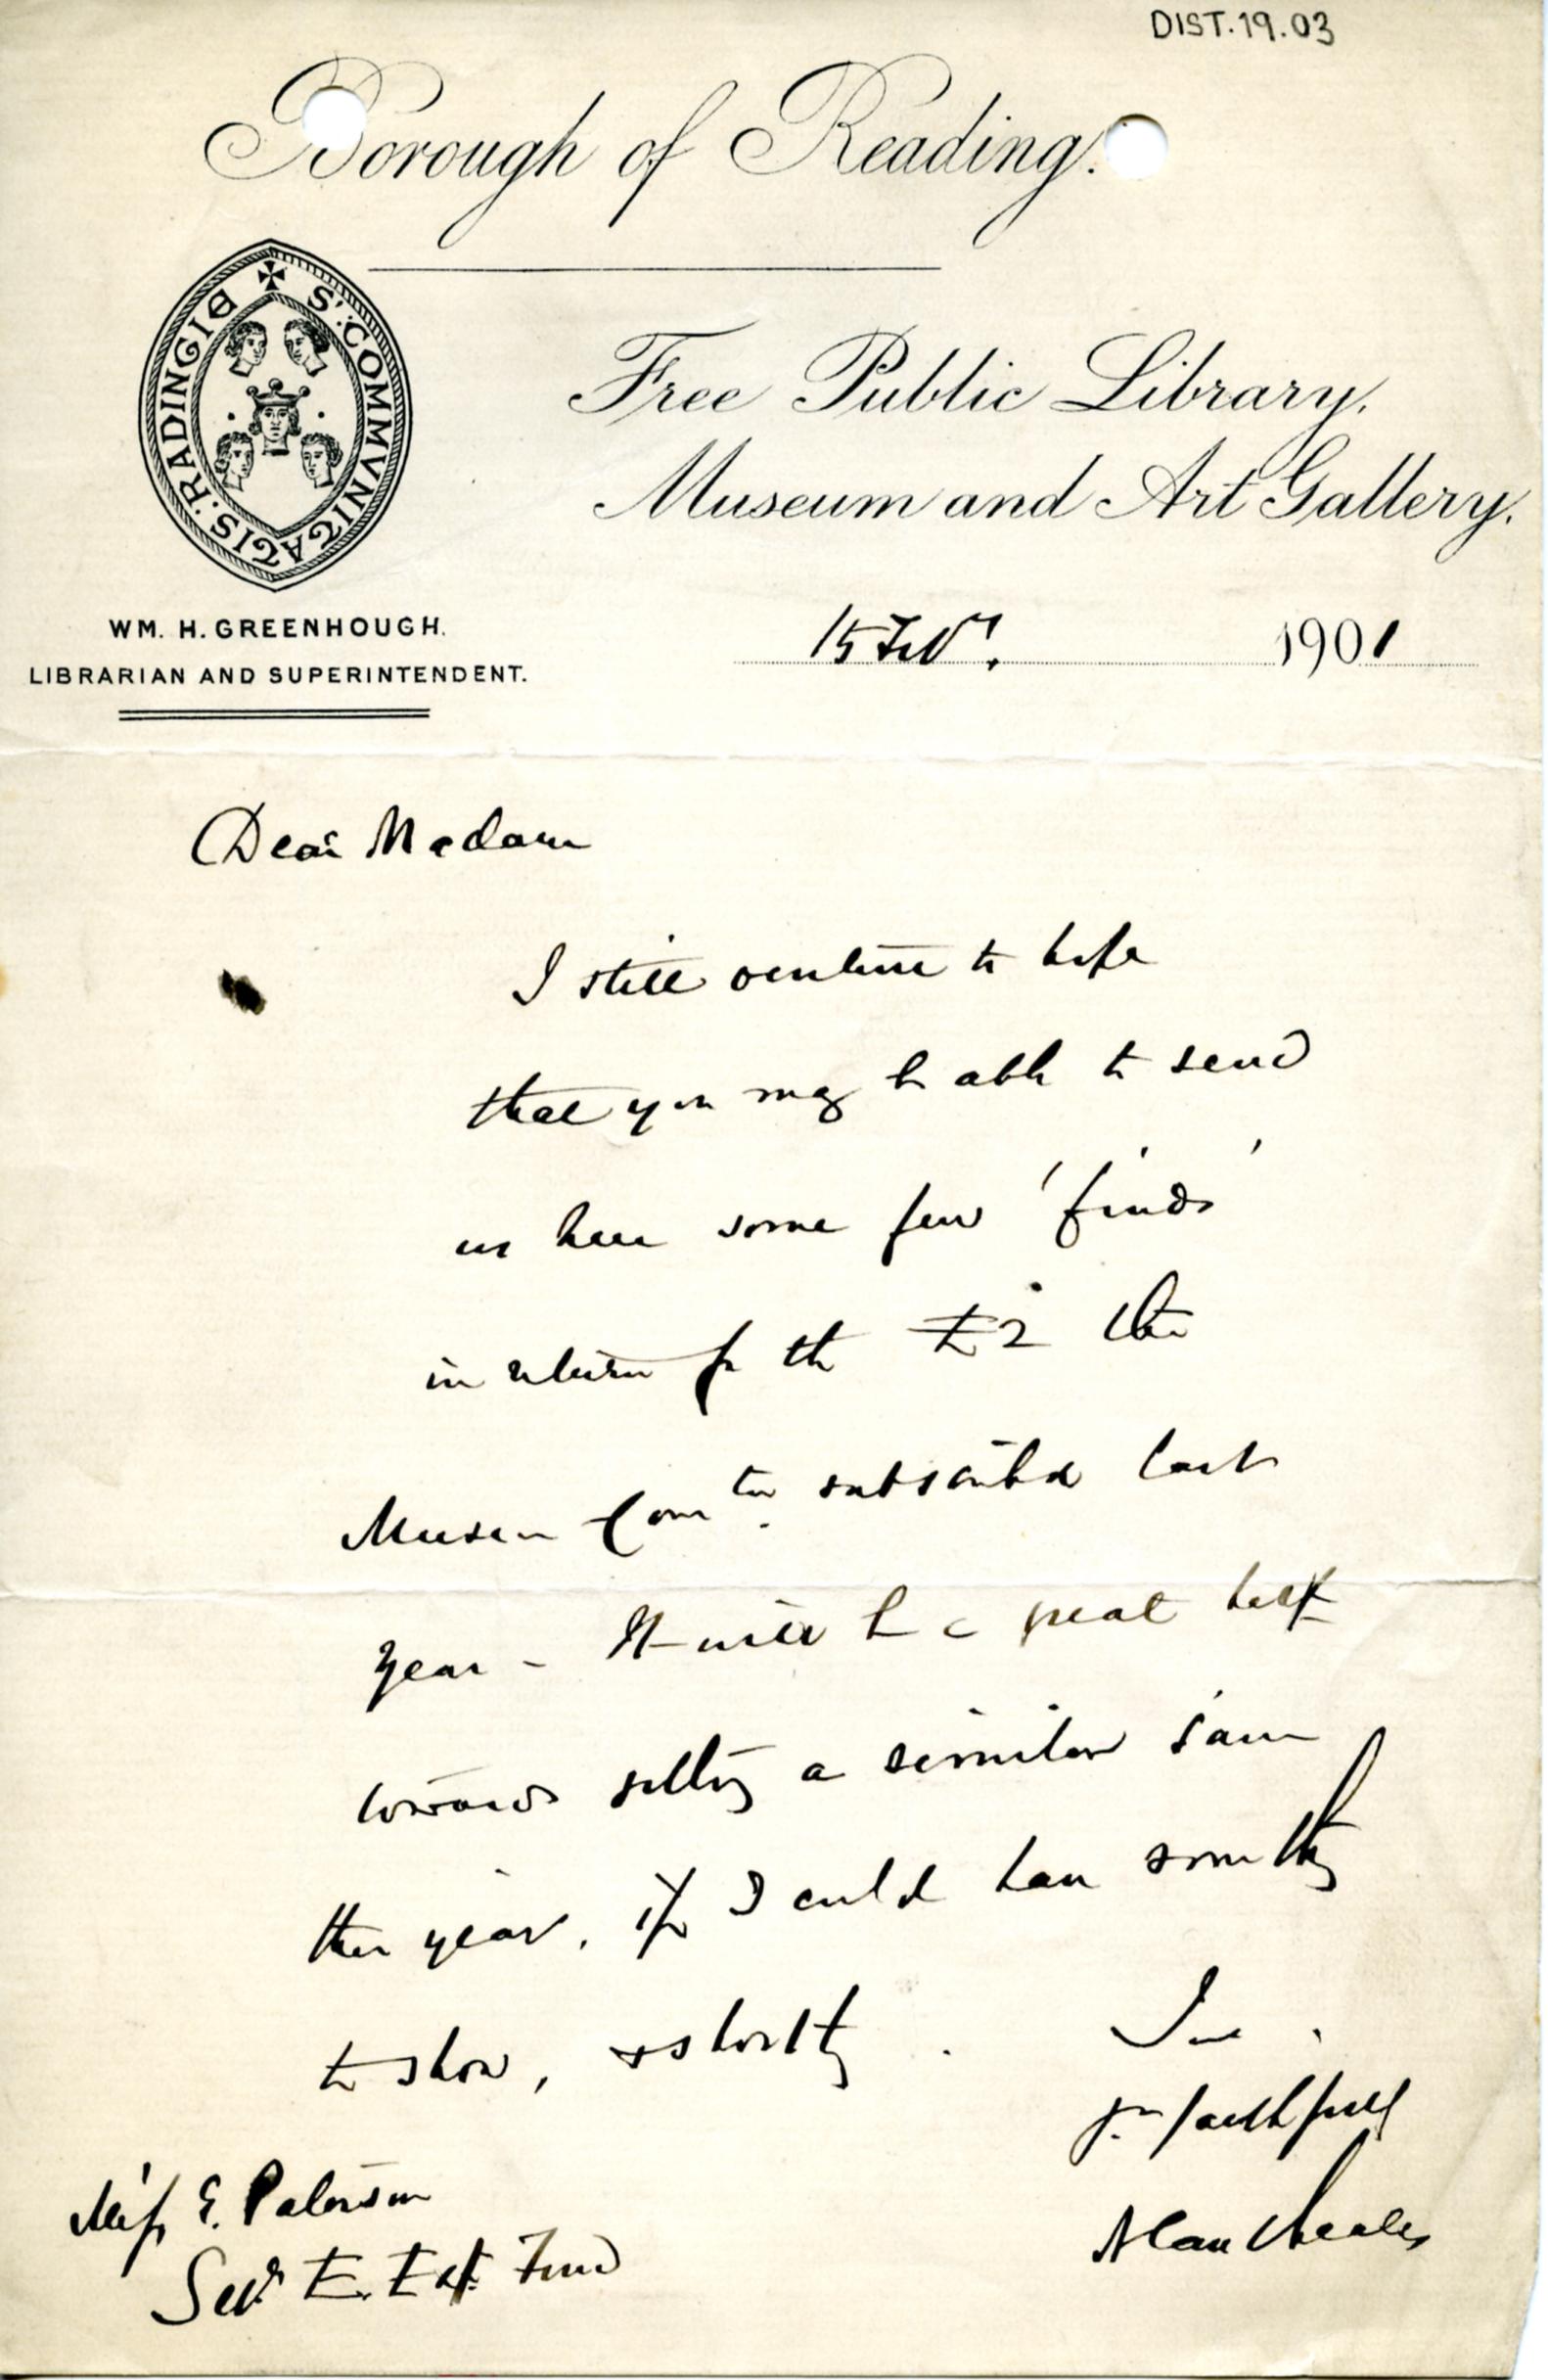 DIST.19.03
Borough of Reading.
S'. COMMVNITATIS. RADINGIE
Free Public Library,
Museum and Art Gallery.
WM. H. GREENHOUGH.
LIBRARIAN AND SUPERINTENDENT.
15 Feby. 1901
Dear Madam
I still venture to hope
that you may be able to send
us here some few 'finds'
in return for the £2 the
Museum Comtee. subscribed last
year - It will be a great help
towards getting a similar sum
this year, if I could have something
to show, & shortly.
I am.
yrs. faithfully
Alan Cheales
Miss E. Paterson
Secy. E. Exp. Fund